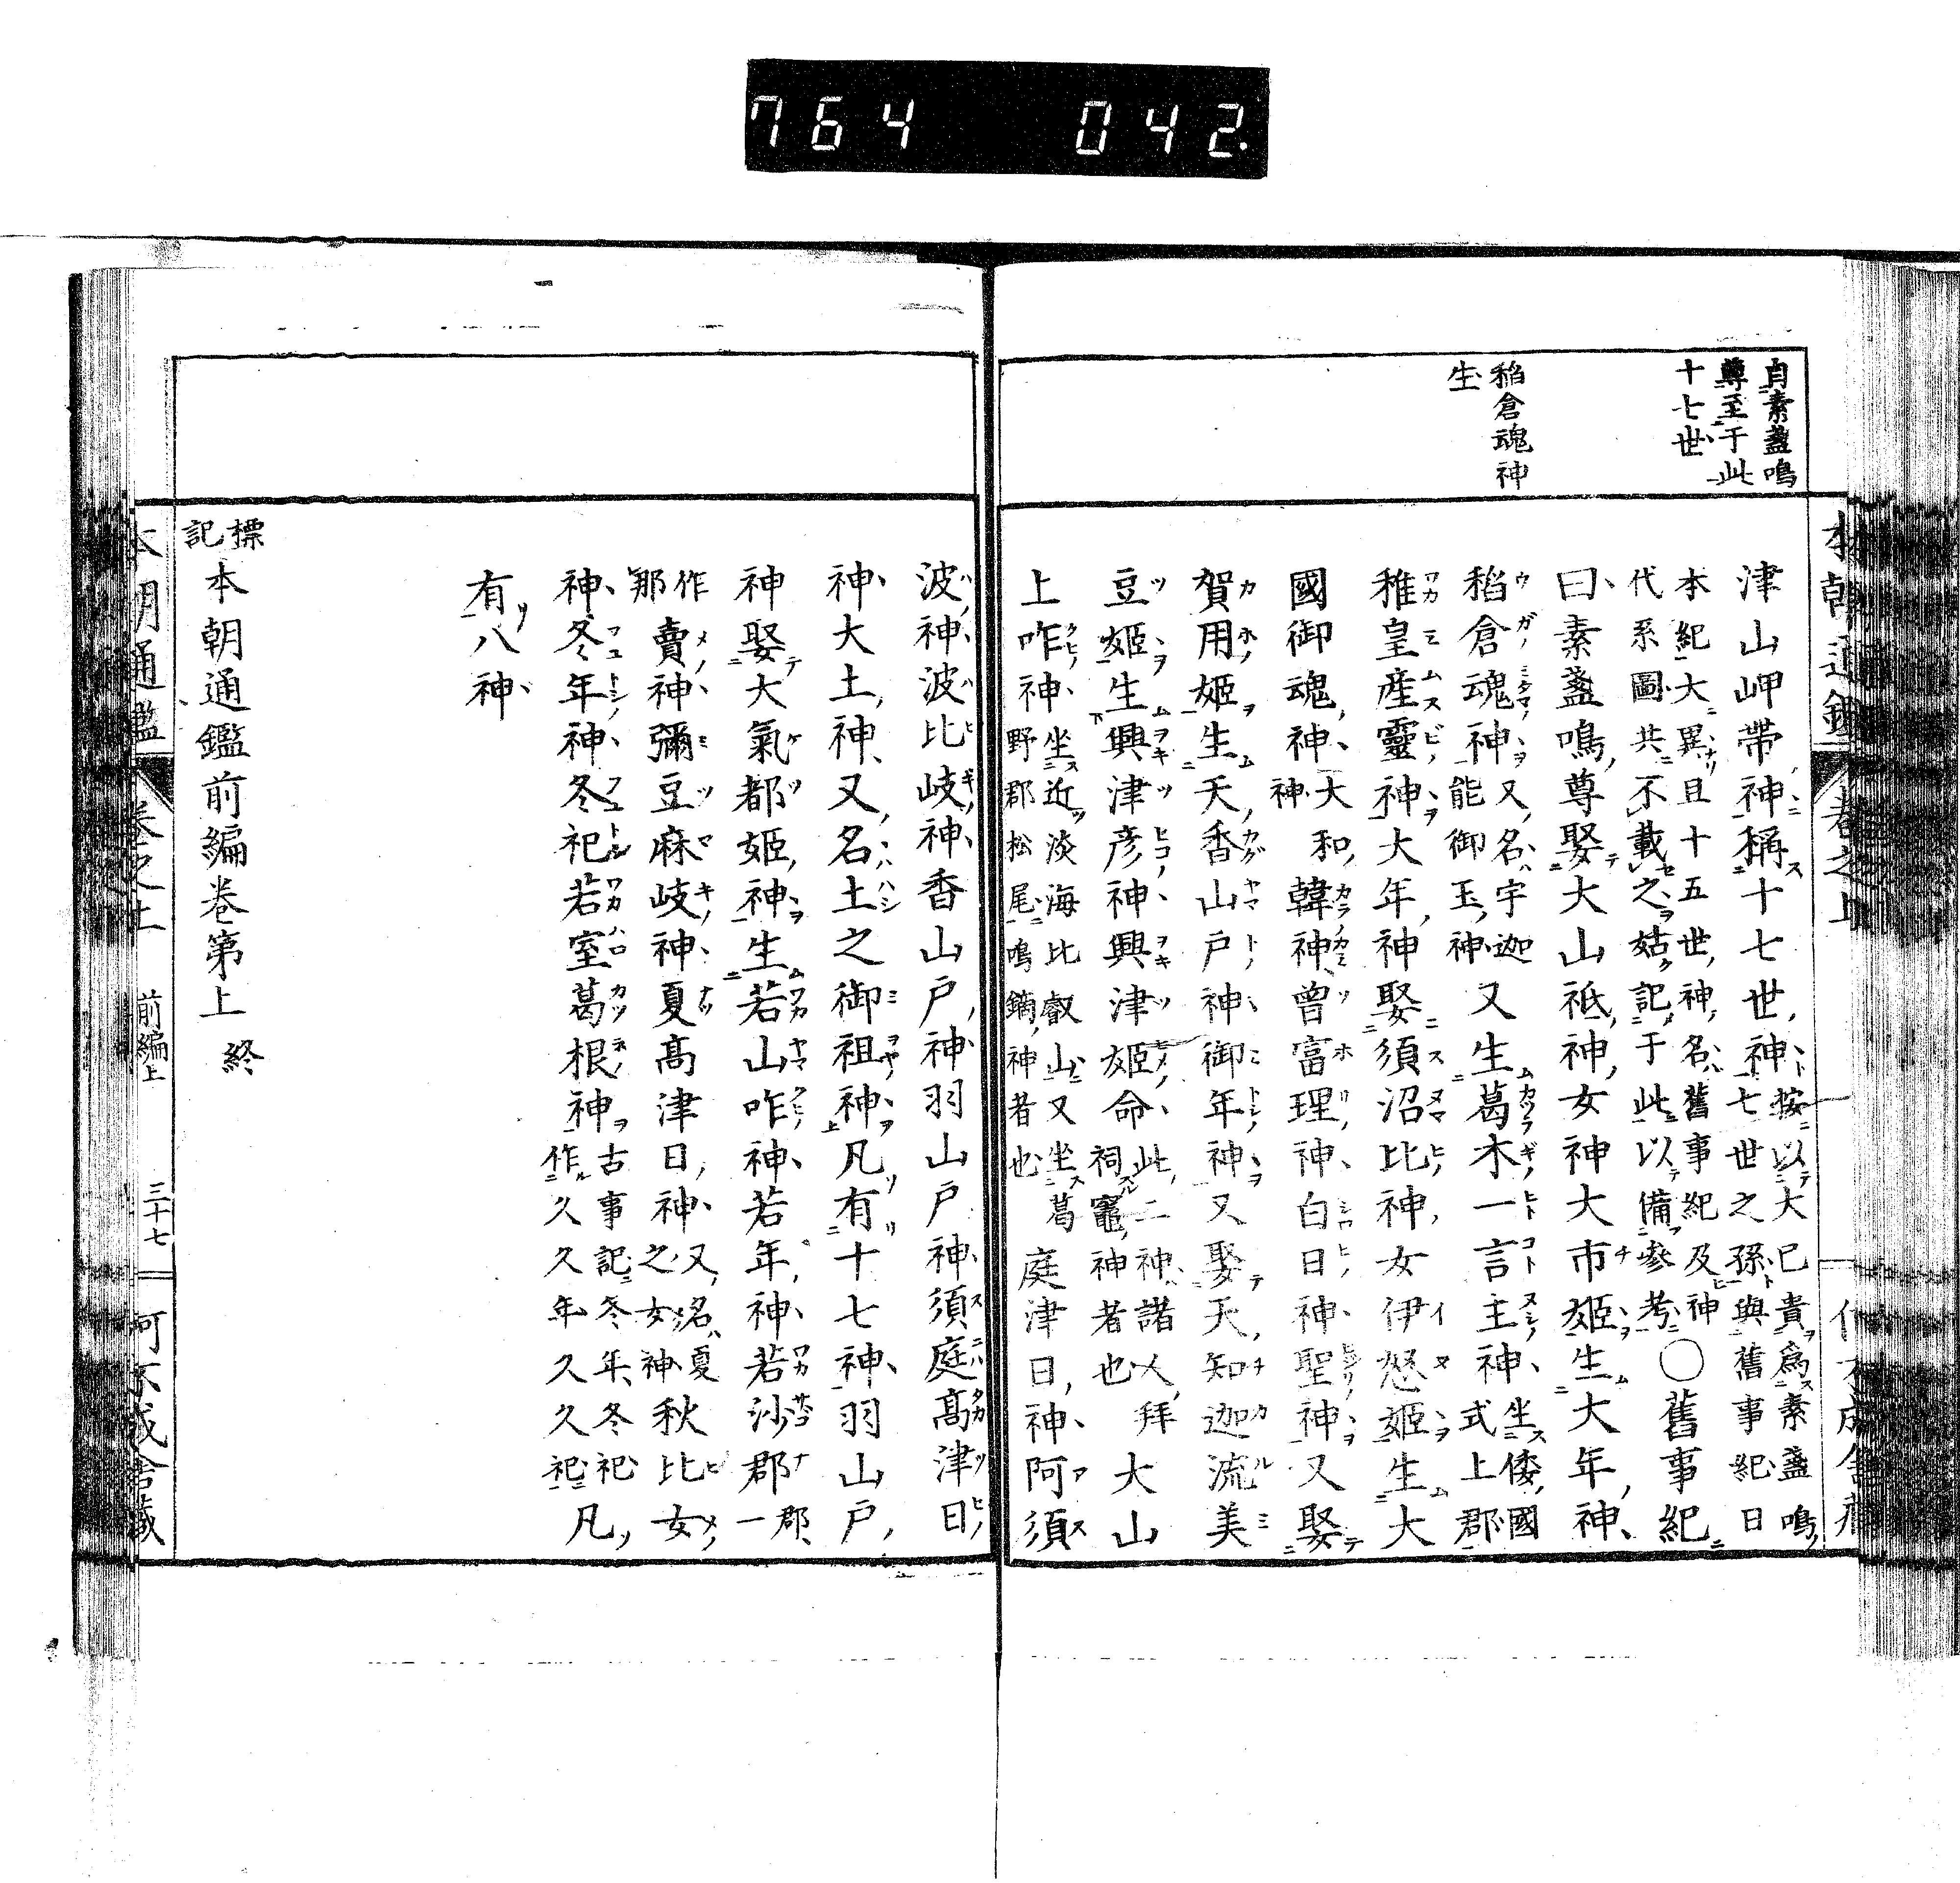 764 042.
自素盞鳴
尊至于此
十七世
稻倉魂神
生
津山岬帶神稱十七世神按以大已貴爲素盞鳴
七世之孫與舊事紀日
本紀大異且十五世神名舊事紀及神
代系圖共不載之姑記于此以備參考〇舊事紀
曰素盞鳴尊娶大山祇神女神大市姬生大年神
稻倉魂神又名宇迦
能御玉神又生葛木一言主神坐倭國
式上郡
稚皇産靈神大年神娶須沼比神女伊怒姬生大
國御魂神大和
神韓神曾富理神白日神聖神又娶
賀用姬生天香山戸神御年神又娶天知迦流美
豆姬生興津彦神興津姬命此二神諸人拜
祠竈神者也大山
上咋神坐近淡海比叡山又坐葛
野郡松尾鳴鏑神者也庭津日神阿須
波神波比岐神香山戸神羽山戸神須庭髙津日
神大土神又名土之御祖神凡有十七神羽山戸
神娶大氣都姬神生若山咋神若年神若沙郡郡一
作
那賣神彌豆麻岐神夏髙津日神又名夏
之女神秋比女
神冬年神冬祀若室葛根神古事記冬年冬祀
作久久年久久祀凡
有八神
標
記本朝通鑑前編卷第上終
本朝通鑑 卷之上 前編上 三十七